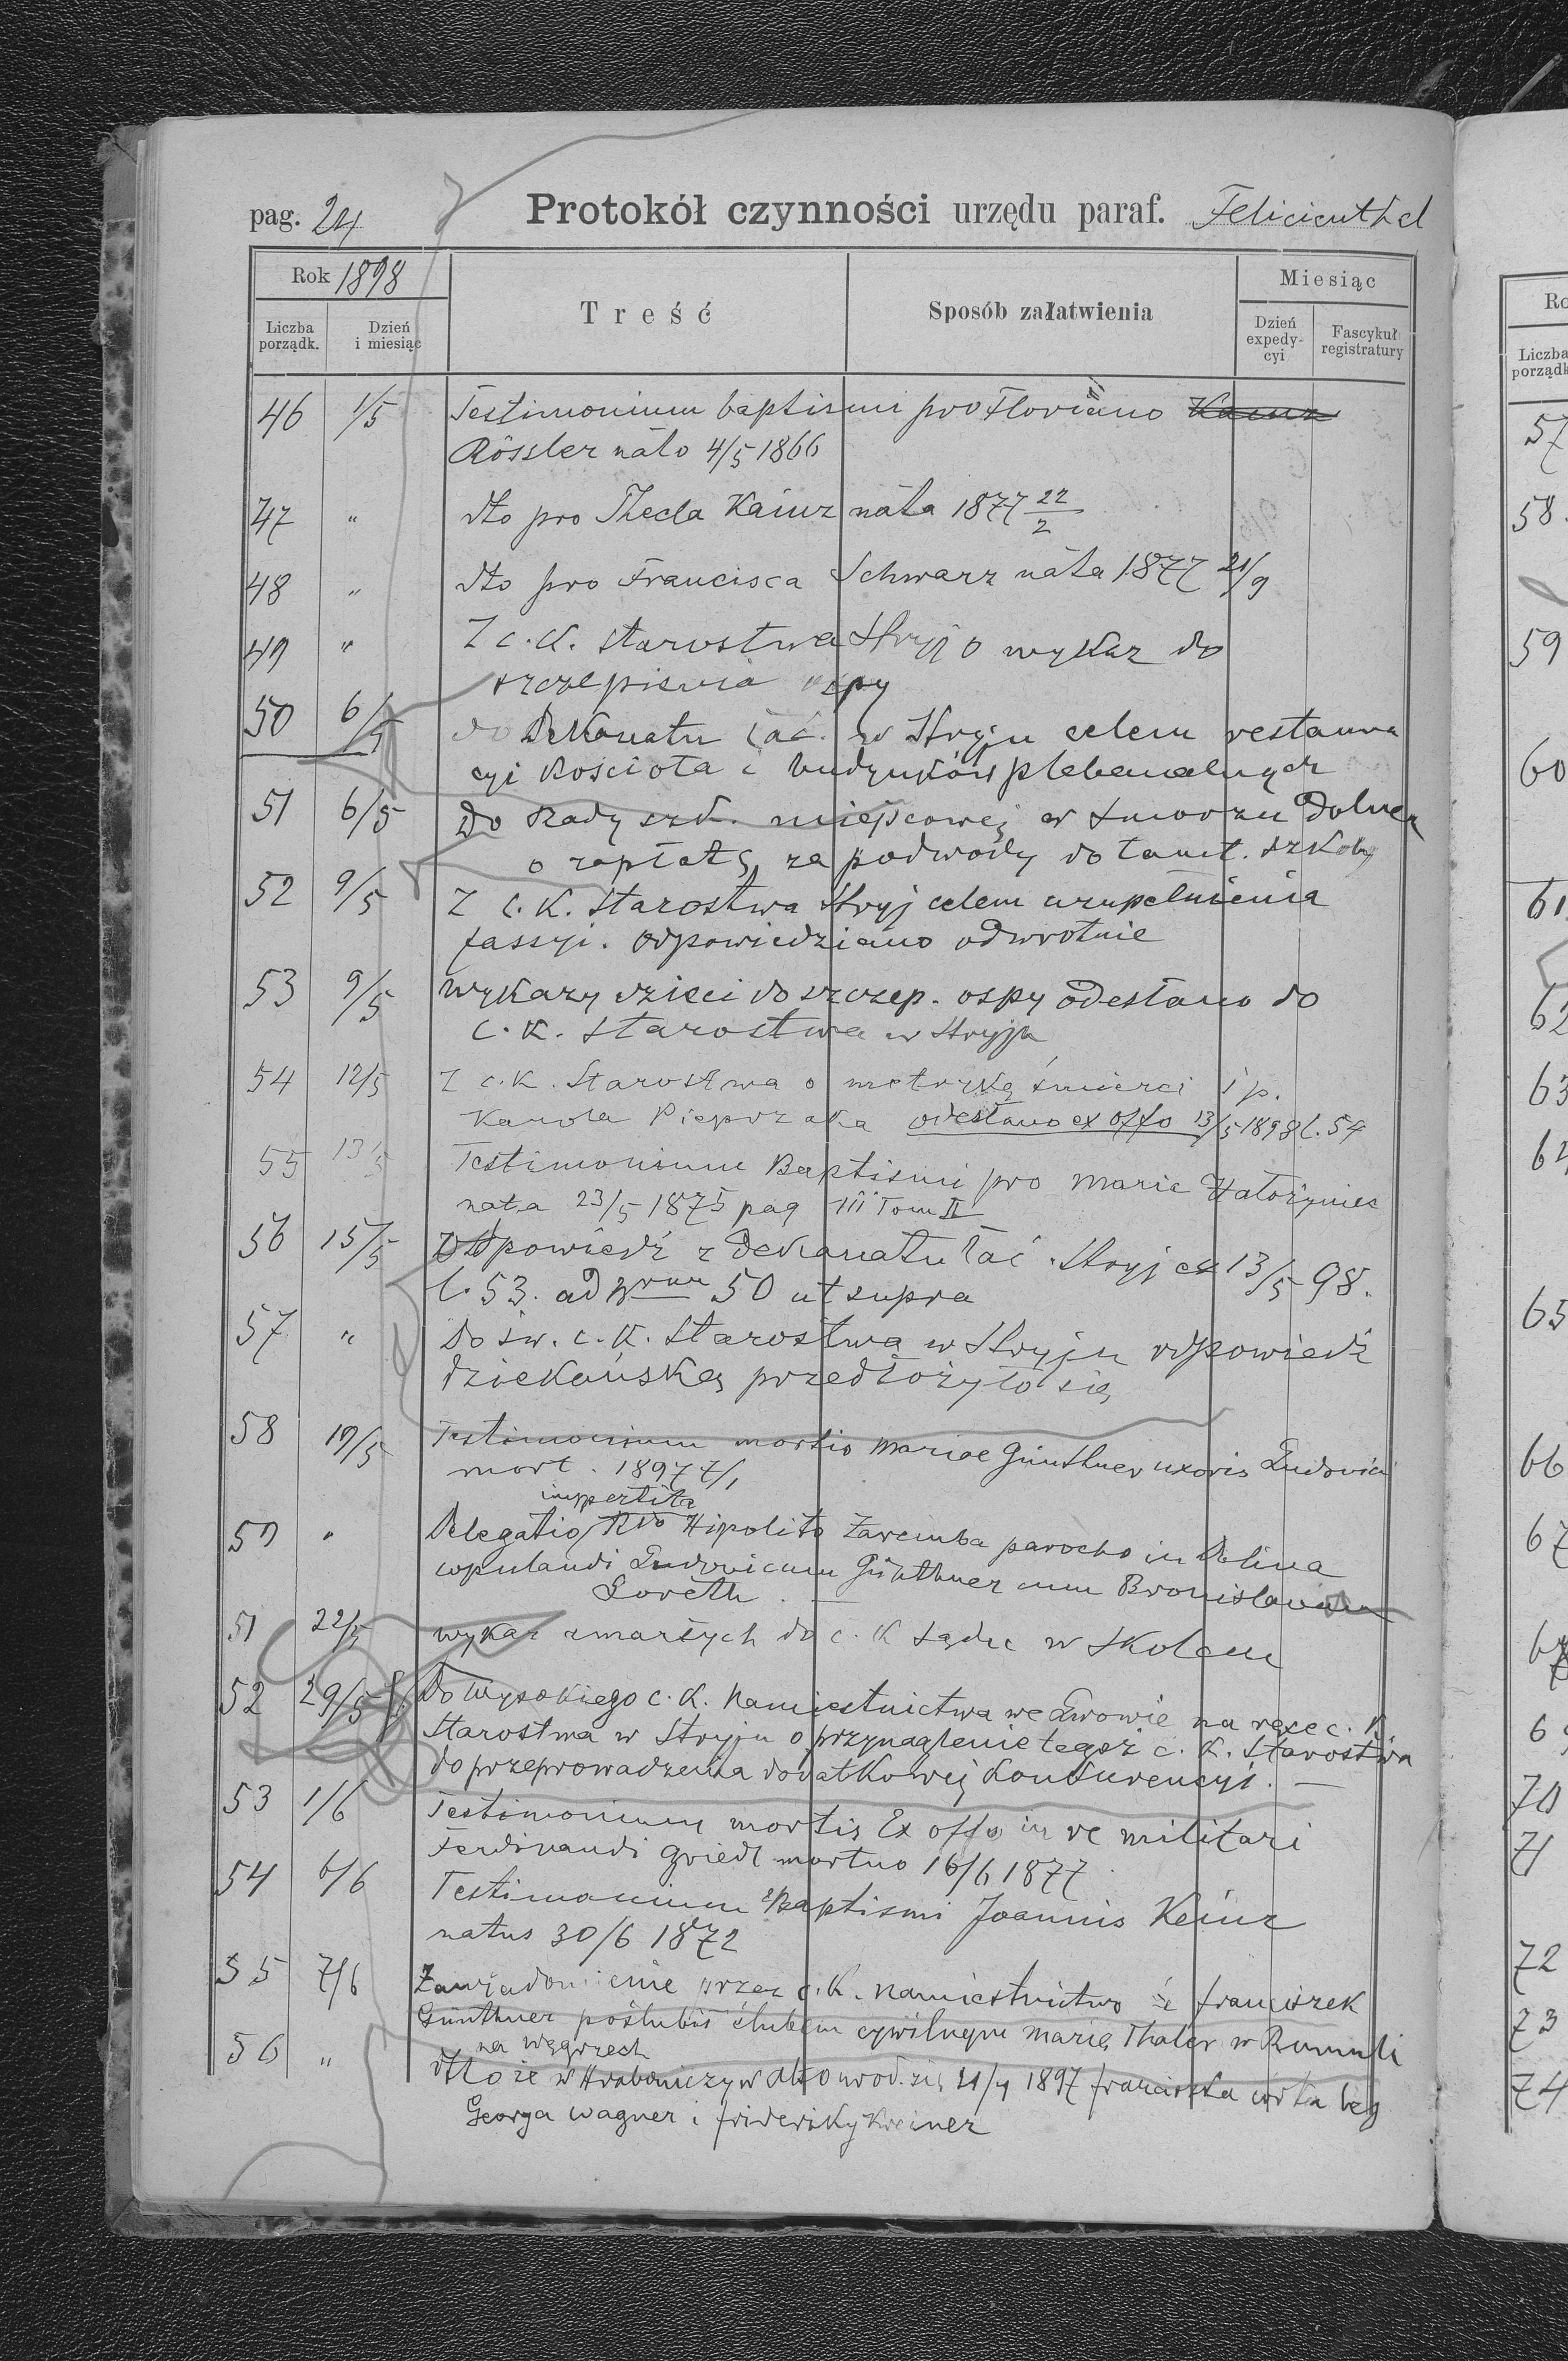 pag. 24 Protokół czynności urzędu paraf. Felicienthal
Rok 1898
Liczba porządk.
Dzień i miesiąc
Treść
Sposób załatwienia
Miesiąc
Dzień expedy-cyi
Fascykuł registratury
46 1/5 Testimonium baptismi pro Floriano Kainz
Rössler nato 4/5 1866
47 " dto pro Thecla Kainz nata 1877 22/2
48 " dto pro Francisca Schwarz nata 1877 21/9
49 " Z c.k. starostwa Stryj o wykaz do
szczepienia ospy
50 6/5 do Dekanatu łać. w Stryju celem restaura
cyi kościoła i budynków plebanalnych
51 6/5 Do Rady szk. miejscowej w Smorzu Dolnem
o zapłatę za podwody do tamt. szkoły
52 9/5 Z c.k. Starostwa Stryj celem uzupełnienia
fassyi. odpowiedziano odwrotnie
53 9/5 wykazy dzieci do szczep. ospy odesłano do
c.k. Starostwa w Stryju
54 12/5 Z c.k. Starostwa o metrykę śmierci ś p.
Karola Pieprzaka odesłano ex offo 13/5 1898 l. 54
55 13/5 Testimonium Baptismi pro Maria
nata 23/5 1875 pag III Tom II
56 15/5 Odpowiedź z Dekanatu łać. Stryj ex 13/5 98.
l. 53. ad Nrum 50 ut supra
57 " Do św. c.k. Starostwa w Stryju odpowiedź
dziekańską przedłożyło się
58 19/5 Testimonium mortis Mariae Günthner uxoris Ludovici
mort. 1897 7/1
impertita
59 " Delegatio Rdo Hipolito Zaremba parocho in Dolina
copulandi Ludovicum Günthner cum Bronislava
Loreth.
51 22/5 wykaz zmarłych do c.k sądu w Skolem
52 29/5 Do Wysokiego c.k. Namiestnictwa we Lwowie na ręce c.k.
Starostwa w Stryju o przynaglenie tegoż c.k. Starostwa
do przeprowadzenia dodatkowej konkurencyi. —
53 1/6 Testimonium mortis Ex offo in re militari
Ferdinandi mortuo 16/6 1877
54 6/6 Testimonium Baptismi Joannis Keinz
natus 30/6 1872
55 7/6 Zawiadomienie przez c.k. namiestnictwo że franciszek
Günthner poślubił ślubem cywilnym Marię Thaler w
na węgrzech
56 " dtto że w urodz. się 21/4 1897 franciszka córka
Georga Wagner i frideriky Kreiner
Liczba porządk
57
58.
59
60
61
62
63
64
65
66
67
69
70
71
72
73
74